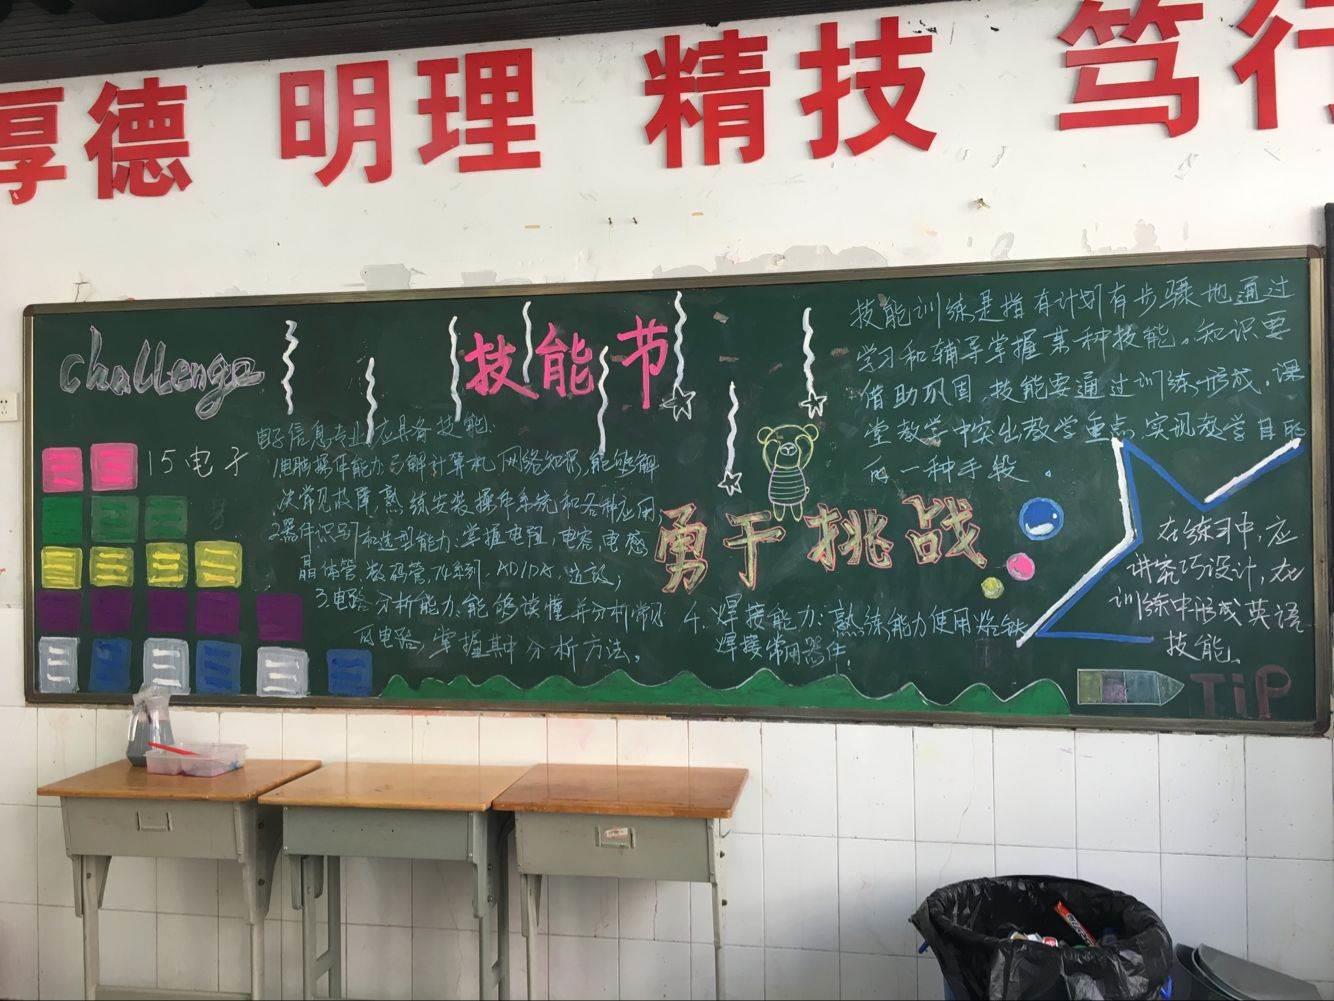 厚德 明理 精技 笃行
challenge
技能节
15电子
电子信息专业应具备技能:
1.电脑操作能力:了解计算机,网络知识,能够解
决常见故障,熟练安装操作系统和各种应用,
2.器件识别和选型能力:掌握电阻,电容,电感
晶体管,数码管,74系列,AD/DA,
3.电路分析能力:能够读懂并分析常见
的电路,掌握其中分析方法。
勇于挑战
4.焊接能力:熟练能力使用烙铁
焊接常用器件,
技能训练是指有计划有步骤地通过
学习和辅导掌握某一种技能。知识要
借助巩固,技能要通过训练形成,课
堂教学中突出教学重点,实现教学目的
的一种手段。
在练习中,应
讲究巧设计,在
训练中形成英语
技能。
TiP